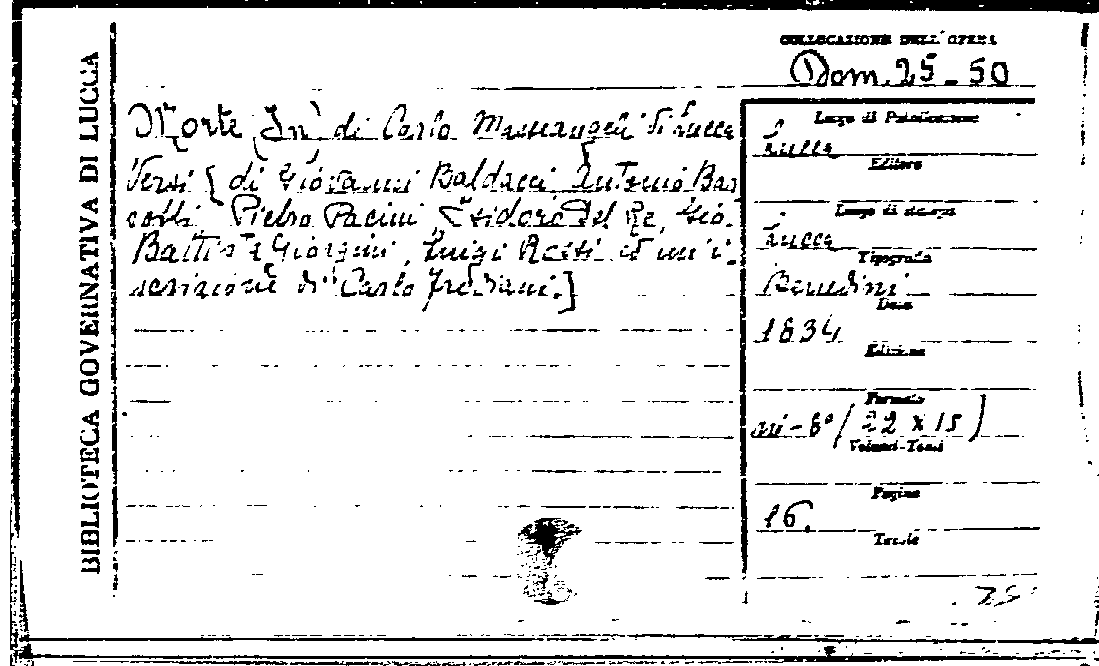 BIBLIOTECA GOVERNATIVA DI LUCCA
COLLOCAZIONE DELL'OPERA
Dom. 25-50
Morte In di Carlo Massangeli di Lucca
Versi [di Giovanni Baldacci Antonio Bar
Pietro Pacini Isidoro Del Re, Gio.
Battista Giorgini, Luigi Rossi ed un'i-
scrizione di Carlo Frediani.]
Luogo di Pubblicazione
Lucca
Editore
Luogo di stampa
Lucca
Tipografia
Benedini
Data
1834
Edizione
Formato
in-8° (22 x 15)
Volumi-Tomi
Pagine
16.
Tavole